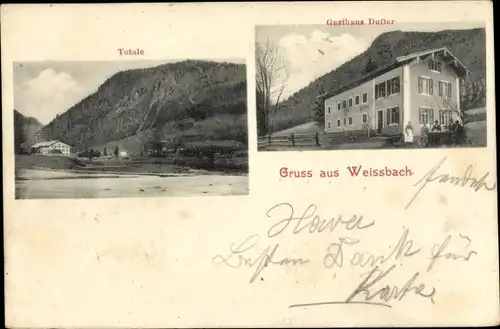 Totale
Gasthaus Dufter
Gruss aus Weissbach
sendet
Besten Dank für
Karte